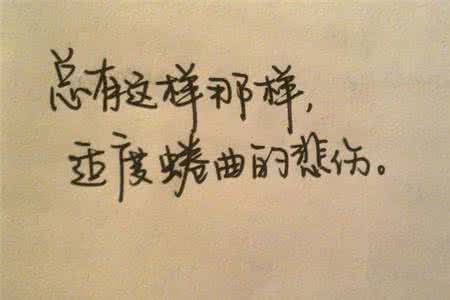 总有这样那样,
适度蜷曲的悲伤。